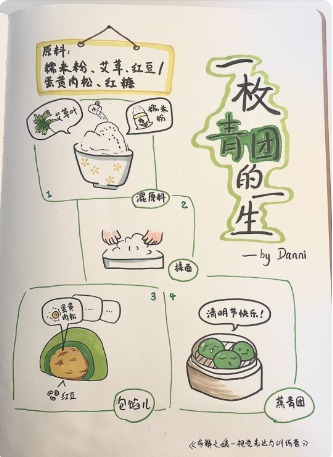 原料：
糯米粉、艾草、红豆/
蛋黄肉松、红糖
一枚青团的一生
—by Danni
艾草叶
糯米粉
1
混原料
2
揉面
3
蛋黄肉松
红豆
包馅儿
4
清明节快乐！
蒸青团